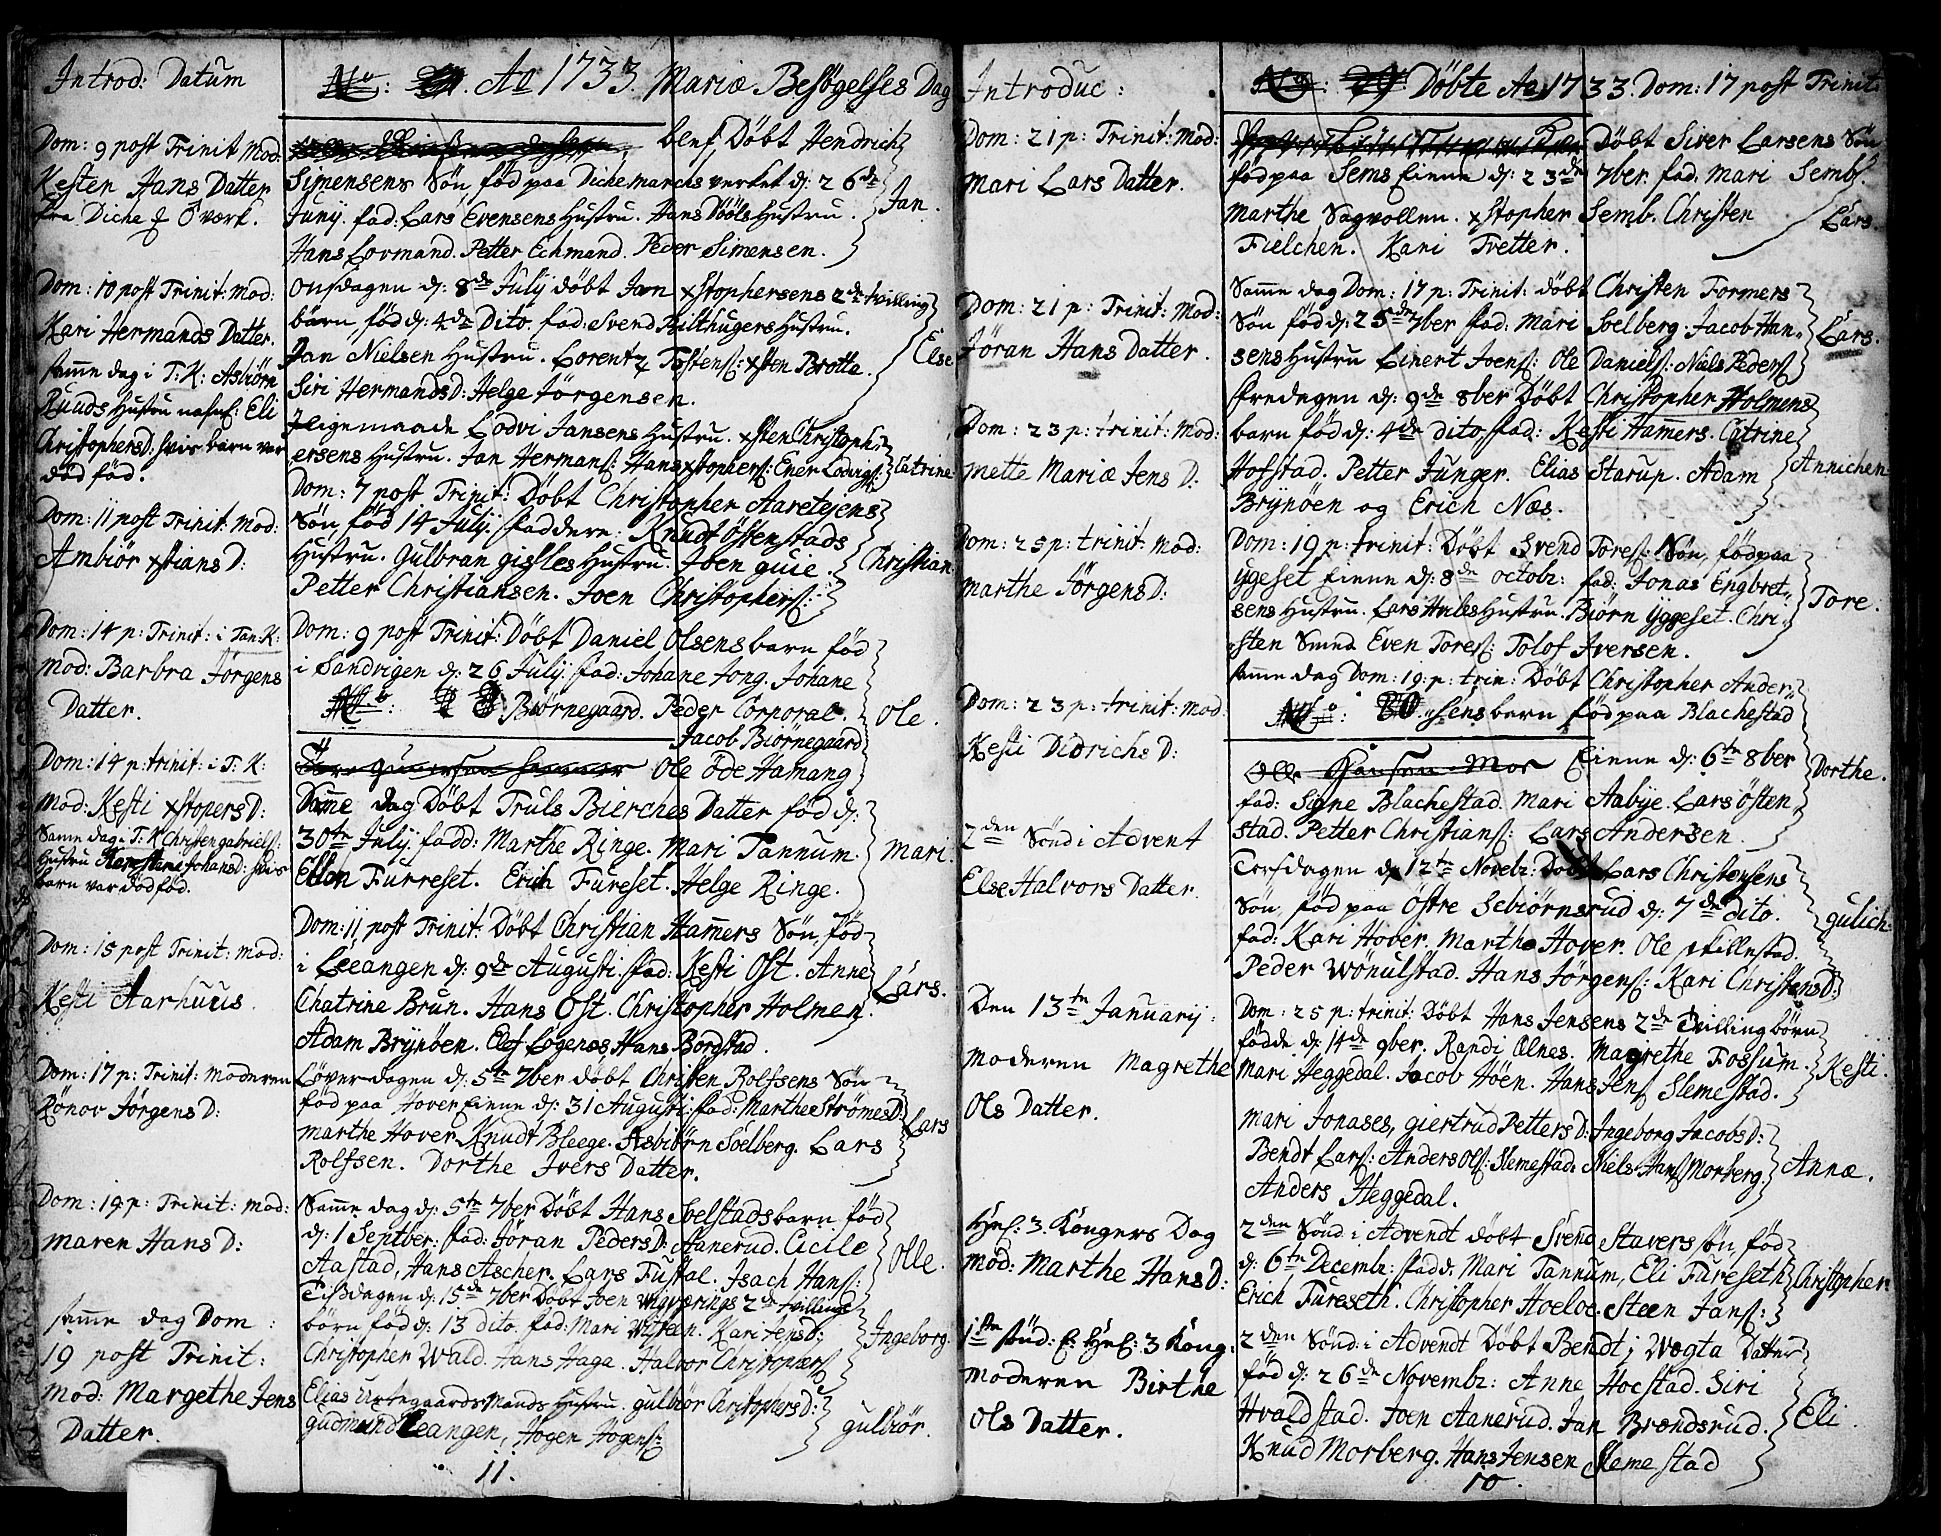 Introd: Datum
Dom: 9 post Trinit Mod:
Kesten Hans Datter
fra Diche & Öværk.
Dom: 10 post Trinit: Mod:
Kari Hermands Datter.
samme dag i T: K: Asbiörn
Ruuds Hustru nafnl: Eli
ChristophersD: hvis barn var
död föd.
Dom: 11 post Trinit: Mod:
Ambiör xstiansD:
Dom: 14 p: Trinit: i Tan: K:
Mod: Barbra Jörgens
Datter.
Dom: 14 p: trinit: i T: K:
Mod: Kesti xstopersD:
Samme dag i T: K Christen gabriels:
Hustru Karestine JohansD: hvis
barn var död föd.
Dom: 15 post Trinit: Mod:
Kesti Aarhuus.
Dom: 17 p: Trinit: Moderen
Rönov JörgensD:
Dom: 19 p: Trinit: Mod:
Maren HansD:
samme dag Dom:
19 post Trinit:
Mod: Margethe Jens
Datter.
No: Ao 1733. Mariæ Besögelses Dag
blef Döbt Hendrich
Simensens Sön, föd paa Dichemarchs verket d: 26de
Juny. fad: Lars Evensens Hustru. Hans Hustru.
Hans Lovmand. Petter Echmand. Peder Simensen.
Jan.
Onsdagen d: 8de July döbt Jan xstophersens 2de tvilling
börn, föd d: 4de Dito. fad: Svend Hustru.
Jan Nielsen Hustru. Lorentz Tostens: xsten Brotte.
Siri HermandsD: Helge Jörgensen.
Else
Ligemaade Lodvi Jansens Hustru. xsten Christoph-
ersens Hustru. Jan Hermans: Hans xstophers: Ener Lodvigs:
Catrine.
Dom: 7 post Trinit: Döbt Christopher Aaretejens
Sön, föd 14 July. faddere: Knudt Östenstads
Hustru. Gulbran gisles Hustru. Joen guie.
Petter Christiansen. Joen Christophers:
Christian.
Dom: 9 post Trinit: Döbt Daniel Olsens barn föd
i Sandvigen d: 26 July. fad: Johane Jong. Johane
No: 28 Biörnegaard. Peder Corporal.
Jacob Biörnegaard
Ole öde Hamang
Ole.
Samme dag Döbt Truls Bierches Datter föd d:
30te July. fadd: Marthe Ringe. Mari Tannum.
Ellen Furreset. Erich Fureset. Helge Ringe.
Mari.
Dom: 11 post Trinit: Döbt Christian Hamers Sön, föd
i Leeangen d: 9de Augusti. fad: Kesti Ost. Anne
Chatrine Brun. Hans Ost. Christopher Holmen.
Adam Brynöen. Hans Bordstad.
Lars.
Löverdagen d: 5te 7ber döbt Christen Rolfsens Sön
föd paa Hover Einne d: 31 Augusti. fad: Marthe StrömesD:
Marthe Hover. Knudt Bleege. Asbiörn Soelberg. Lars
Rolfsen. Dorthe Ivers Datter.
Lars
Samme dag d: 5te 7ber Döbt Hans Soelstads barn föd
d: 1 September: fad: Jöran PedersD: Aanerud. Cicile
Aastad, Hans Ascher. Lars Fustal. Isach Hans:
Olle.
Tisdagen d: 15de 7ber Döbt Joen 2de tvilling
börn föd d: 13 dito. fad: Mari Kari JensD:
Christopher Wald. Hans Haga. Halvor Christophers:
Ingeborg.
Elias Urtegaards Mands Hustru. gulbiör ChristophersD:
gudmund Leangen, Hogen Hogens:
gulbiör.
11.
Introduc:
Dom: 21 p: Trinit: Mod:
Mari Lars Datter.
Dom: 21 p: Trinit: Mod:
Jöran Hans Datter.
Dom: 23 p: trinit: Mod:
Mette Mariæ Jens D:
Dom: 25 p: trinit: Mod:
Marthe JörgensD:
Dom: 23 p: trinit: Mod
Kesti DidrichsD:
2den Sönd: i Advent
Else Halvors Datter.
Den 13te January:
Moderen Magrethe
Ols Datter.
Hel: 3 Kongers Dag
Mod: Marthe HansD:
1ste sönd: E: Hel: 3 Kong:
Moderen Birthe
Ols Datter.
No: 29 Döbte Ao 1733. Dom: 17 post Trinit:
Döbt Siver Larsens Sön
föd paa Sems Einne d: 23de 7ber. fad. Mari Semb.
Marthe Sagvollen. xstopher Semb. Christen
Fielchen. Kari Tvetter.
Lars.
Samme dag Dom: 17 p: Trinit: döbt Christen Formers
Sön föd d: 25de 7ber fad: Mari Soelberg. Jacob Han-
sens Hustru Einert Joens: Ole Daniels: Niels Peders:
Lars.
fredagen d: 9de 8ber Döbt Christopher Holmens
barn föd d: 4de dito, fad: Kesti Hamers. Catrine
Hofstad. Petter Junger. Elias Starup. Adam
Brynöen og Erich Næs.
Annichen.
Dom: 19 p: trinit: Döbt Svend Tores: Sön, föd paa
Yggeset Einne d: 8de octobr: fad: Jonas Engbret-
sens Hustru. Lars Hustru. Biörn Yggeset. Chri-
sten Smed Even Tores: Tolof Iversen.
Tore.
samme dag Dom: 19: p: trin: Döbt Christopher Ander-
No: 30. sens barn föd paa Blachestad
Olle Hansen Moe Einne d: 6te 8ber
fad: Signe Blachestad. Mari Aabye. Lars östen-
stad. Petter Christians: Lars Andersen.
Dorthe.
Torsdagen d: 12te Novebr: Döbt Lars Christensens
Sön, föd paa östre Sebiörnsrud d: 7de dito.
fad: Kari Hover. Marthe Hover. Ole skillestad.
Peder Wönulstad. Hans Jörgens: Kari ChristensD:
gulich.
Dom: 25 p: trinit: Döbt Hans Jensens 2de Tvilling börn
födde d: 14de 9ber. Randi Olnes. Magrethe Fossum.
Mari Heggedal. Jacob Höen. Hans Jens: Slemestad.
Kesti.
Mari Jonases, giertrud PettersD: Ingeborg JacobsD:
Bendt Lars: Anders Ols: Slemestad. Niels Hans: Morberg.
Anders Heggedal.
Annæ.
2den Sönd: i Advendt döbt Svend Stavers sön, föd
d: 6te Decembr: fadd. Mari Tannum, Eli Fureseth
Erich Fureseth. Christopher Hoeloe. Steen Jans:
Christopher
2den Sönd: i Advendt Döbt Bendt i Wogta Datter
föd d: 26de Novembr: Anne Hocstad. Siri
Hvaldstad. Joen Aanerud. Jan Brændsrud.
Knud Morberg. Hans Jensen Slemestad
Eli.
10.